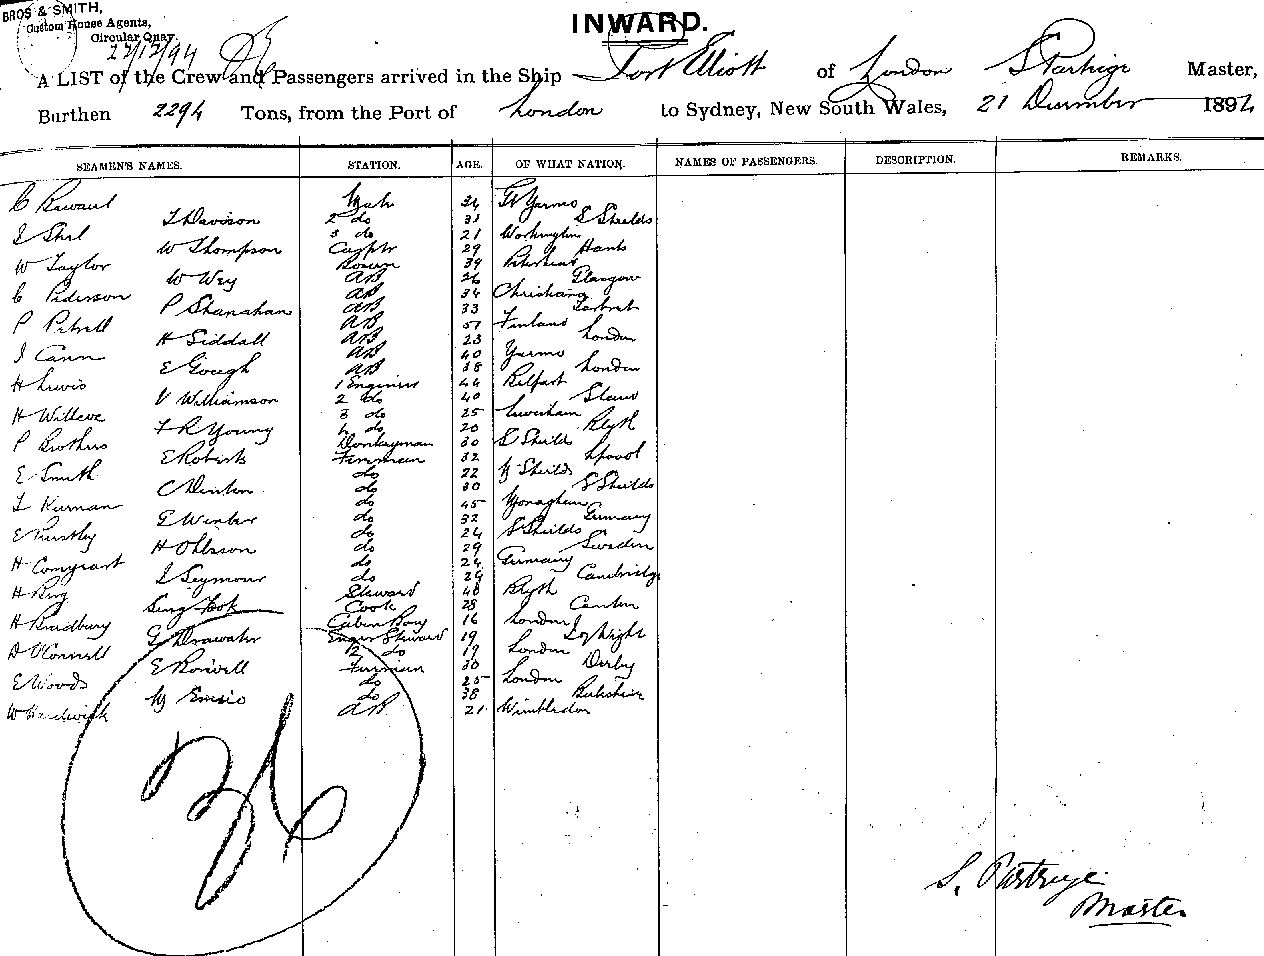 BROS & SMITH,
Custom House Agents,
Circular Quay.
INWARD.
27/12/94
A LIST of the Crew and Passengers arrived in the Ship Port Elliott of London S Partrige Master,
Burthen 2294 Tons, from the Port of London to Sydney, New South Wales, 21 December 1894
SEAMEN'S NAMES. STATION. AGE. OF WHAT NATION. NAMES OF PASSENGERS. DESCRIPTION. REMARKS.
C Mate 24 Yarmo
T Davison 2 do 31 S Shields
3 do 21 Workington
W Thompson 29 Hants
W Taylor Bosun 39
W Wey AB 26 Glasgow
C Pederson AB 34
P Shanahan AB 33
P AB 51 Finland
H Siddall AB 23 London
J Cann AB 40 Yarmo
E Gough AB 38 London
H Lewis 1 Engineer 44 Belfast
V Williamson 2 do 40
H 3 do 25
T R Young 4 do 20 Blyth
P Brothers Donkeyman 30 S Shields
E Roberts Fireman 32 Lpool
E Smith do 22 N Shields
C Denton do 30 S Shields
T Kiernan do 45 Monaghan
G Winter do 32 Germany
E do 24 S Shields
H Ohlsson do 29 Sweden
H do 24 Germany
J Seymour do 29 Cambridge
H Steward 40 Blyth
Sing Cook 28 Canton
H Bradbury Cabin Boy 16 London
G Drawater Engrs Steward 19 I of Wight
D O'Connell 2 do 19 London
E Fireman 30 Derby
E Woods do 25 London
do 38 Berkshire
W Hardwick AB 21 Wimbledon
36
S. Partrige
Master